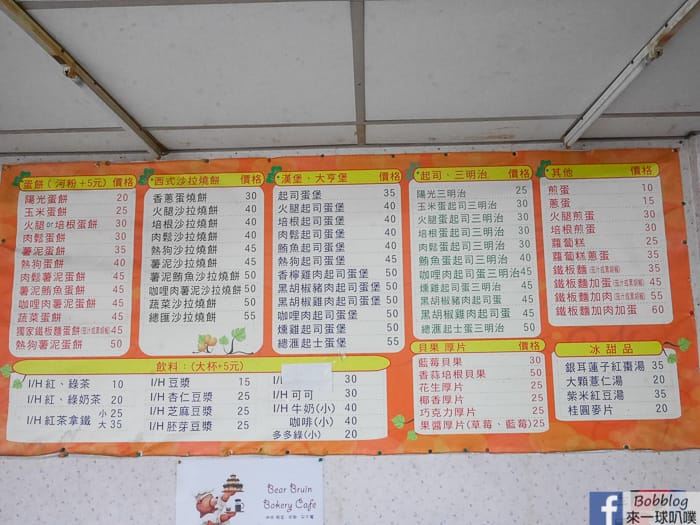 蛋餅(河粉+5元) 價格
陽光蛋餅 20
玉米蛋餅 25
火腿or培根蛋餅 30
肉鬆蛋餅 30
薯泥蛋餅 35
熱狗蛋餅 40
肉鬆薯泥蛋餅 45
薯泥鮪魚蛋餅 45
咖哩肉薯泥蛋餅 45
蔬菜蛋餅 45
獨家鐵板麵蛋餅(茄汁或黑胡椒) 45
熱狗薯泥蛋餅 50
西式沙拉燒餅 價格
香蔥蛋燒餅 30
火腿沙拉燒餅 40
培根沙拉燒餅 40
肉鬆沙拉燒餅 40
鮪魚沙拉燒餅 45
熱狗沙拉燒餅 45
薯泥沙拉燒餅 45
薯泥鮪魚沙拉燒餅 50
咖哩肉薯泥沙拉燒餅 50
蔬菜沙拉燒餅 50
總匯沙拉燒餅 55
漢堡、大亨堡 價格
起司蛋堡 35
火腿起司蛋堡 40
培根起司蛋堡 40
肉鬆起司蛋堡 40
鮪魚起司蛋堡 40
熱狗起司蛋堡 45
香檸雞肉起司蛋堡 50
黑胡椒豬肉起司蛋堡 50
黑胡椒雞肉起司蛋堡 50
咖哩肉起司蛋堡 50
燻雞起司蛋堡 50
總滙起士蛋堡 55
起司、三明治 價格
陽光三明治 25
玉米蛋起司三明治 30
火腿蛋起司三明治 30
培根蛋起司三明治 30
肉鬆蛋起司三明治 35
鮪魚蛋起司三明治 40
咖哩肉起司蛋三明治 45
燻雞起司蛋三明治 45
黑胡椒豬肉起司蛋 45
黑胡椒雞肉起司蛋 45
總滙起士三明治 50
其他 價格
煎蛋 10
蔥蛋 15
火腿煎蛋 30
培根煎蛋 30
蘿蔔糕 25
蘿蔔糕蔥蛋 35
鐵板麵(茄汁或黑胡椒) 35
鐵板麵加蛋(茄汁或黑胡椒) 45
鐵板麵加肉(茄汁或黑胡椒) 55
鐵板麵加肉加蛋 60
飲料:(大杯+5元)
I/H 紅、綠茶 10
I/H 紅、綠奶茶 20
I/H 紅茶拿鐵 小 25
大 35
I/H 豆漿 15
I/H 杏仁豆漿 25
I/H 芝麻豆漿 25
I/H 胚芽豆漿 25
I/H 30
I/H 可可 30
I/H 牛奶(小) 40
咖啡(小) 40
多多綠(小) 20
貝果 厚片 價格
藍莓貝果 30
香蒜培根貝果 50
花生厚片 25
椰香厚片 25
巧克力厚片 25
果醬厚片(草莓、藍莓) 25
冰甜品
銀耳蓮子紅棗湯 35
大顆薏仁湯 20
紫米紅豆湯 35
桂圓麥片 20
Bear Bruin
Bakery Cafe
Bobblog
來一球叭噗